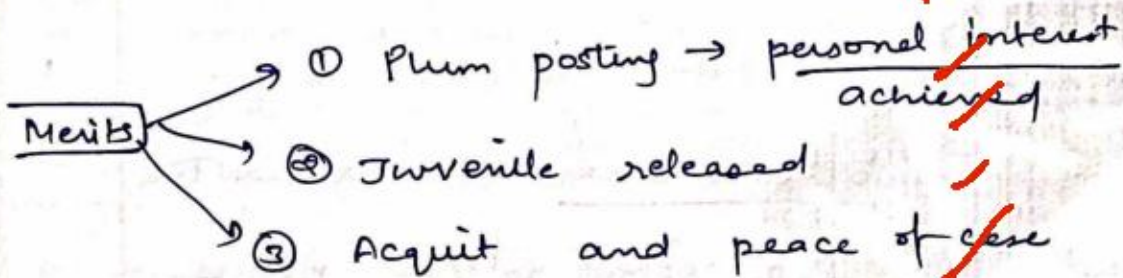 ① Plum posting → personal interest
achieved
Merits
② Juvenille released
③ Acquit and peace of case